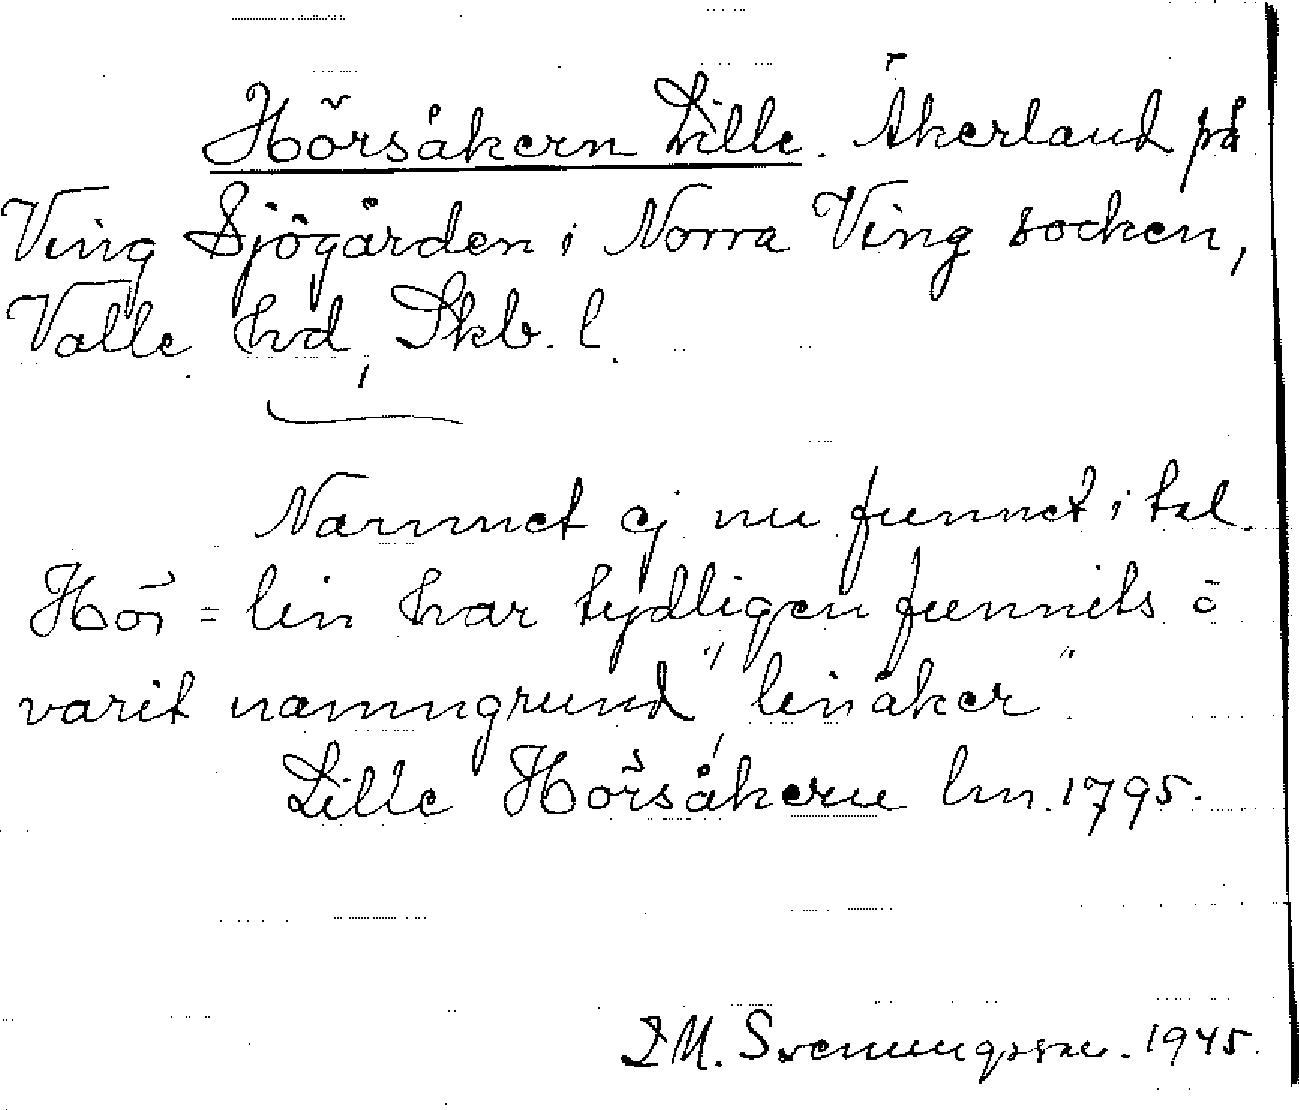 Hörsåkern Lille. Åkerland på
Ving Sjögården i Norra Ving socken,
Valle hd, Skb. l.
Namnet ej nu funnet i tal.
Hör = lin har tydligen funnits o
varit namngrund, "linåker"
Lille Hörsåkern lm. 1795.
L M. Svenungsson. 1945.